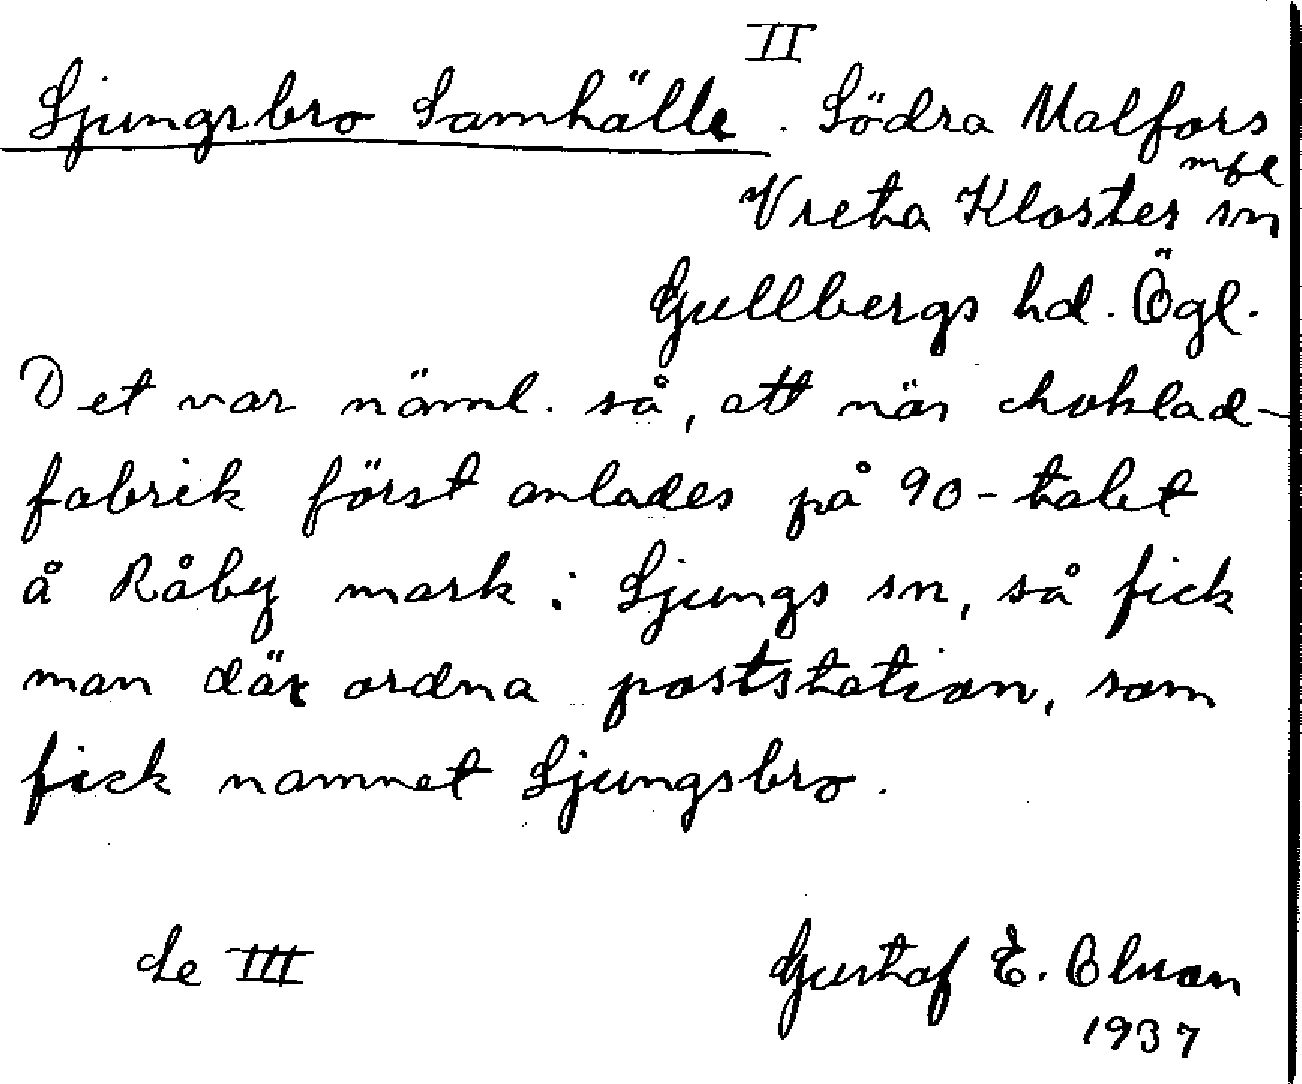 II
Ljungsbro Samhälle. Södra Malfors
mfl
Vreta Kloster sn
Gullbergs hd. Ögl.
Det var näml. så, att när choklad-
fabrik först anlades på 90-talet
å Råby mark i Ljungs sn, så fick
man där ordna poststation, som
fick namnet Ljungsbro.
Se III
Gustaf E. Olson
1937